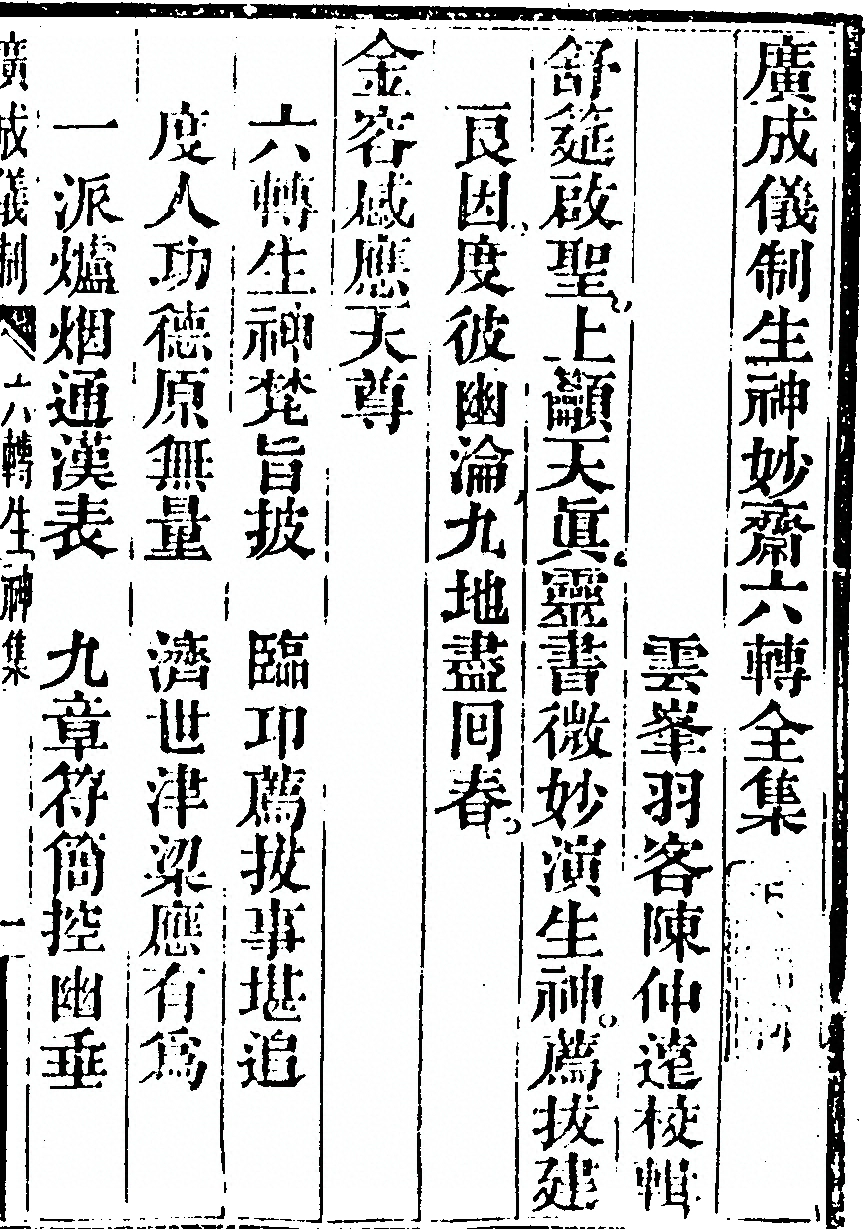 廣成儀制生神妙齋六轉全集
雲峯羽客陳仲遠校輯
舒筵啟聖上籲天眞靈書微妙演生神薦拔建
良因度彼幽淪九地盡回春
金容感應天尊
六轉生神梵旨披　臨卭薦拔事堪追
度人功德原無量　濟世津梁應有爲
一派爐烟通漢表　九章符簡控幽垂
廣成儀制　六轉生神集　一